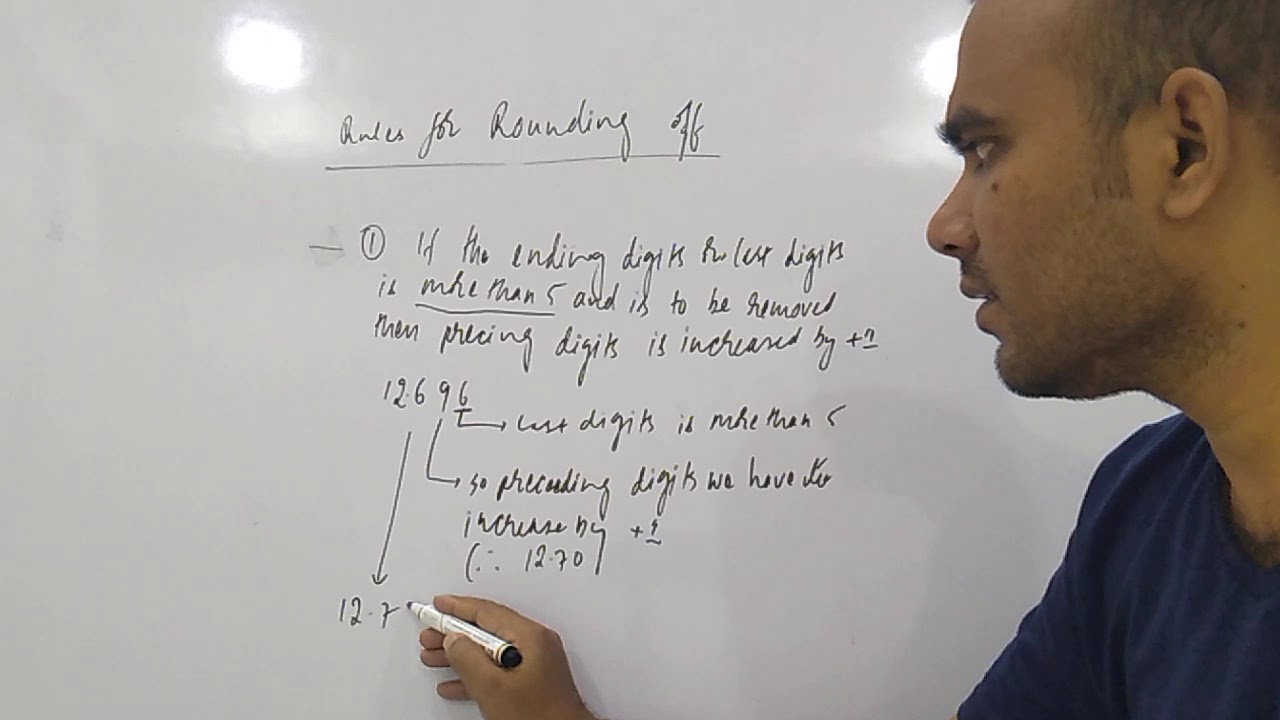 Rules for Rounding off
① If the ending digits or last digits
is more than 5 and is to be removed
then precing digits is increased by +1
12.6 9 6
Last digits is more than 5
so preceeding digits we have to
increase by +1
(∴ 12.70)
12.7